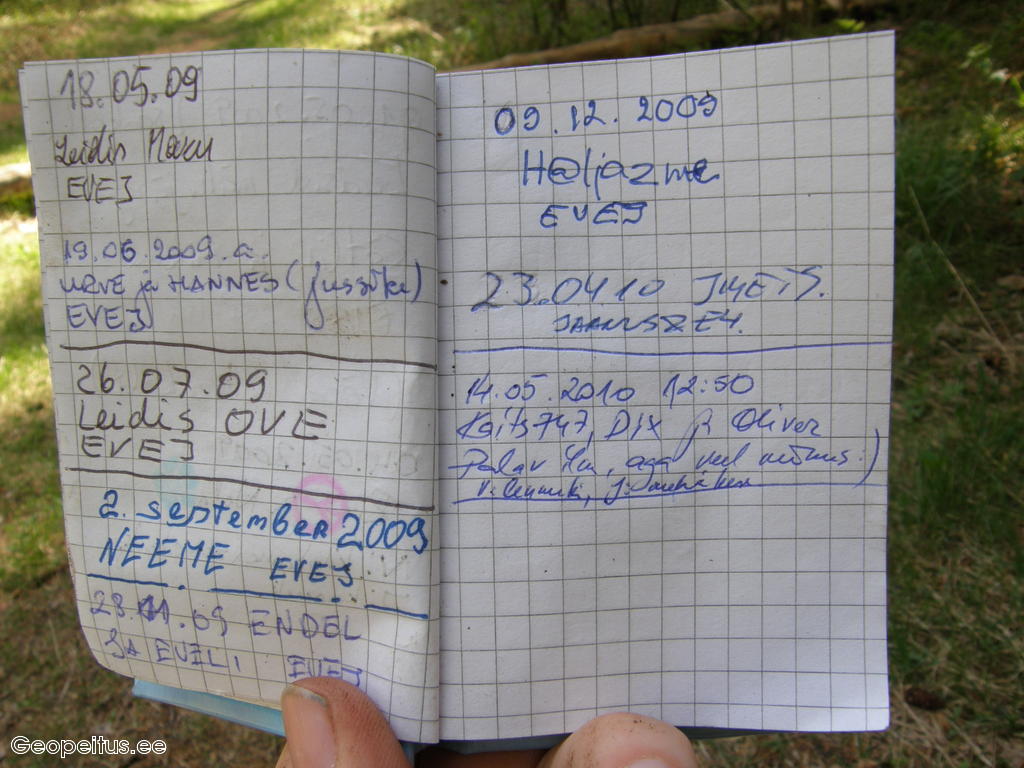 18.05.09
Leidis
EVEJ
19.06.2009.a.
URVE ja HANNES (Jussike)
EVEJ
26.07.09
Leidis OVE
EVEJ
2. september 2009
NEEME EVEJ
28.11.09 ENDEL
JA EVELI EVEJ
09.12.2009
H@ljazme
EVEJ
23.04 10
14.05.2010 12:50
Kaits747, DIX ja Oliver
Palav ilm, aga veel mõnus :)
Geopeitus.ee